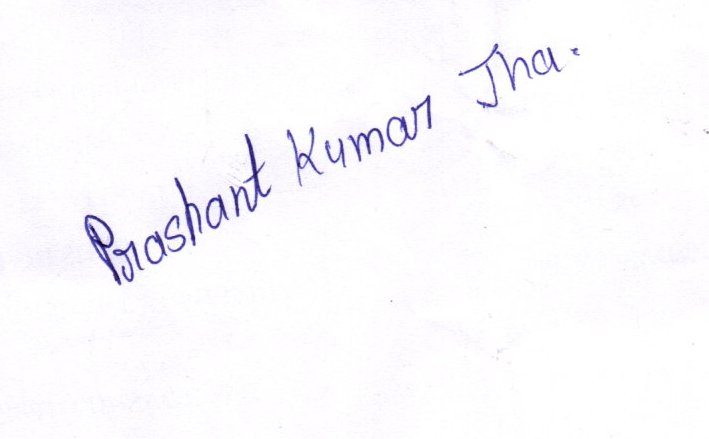 Prashant Kumar Jha.